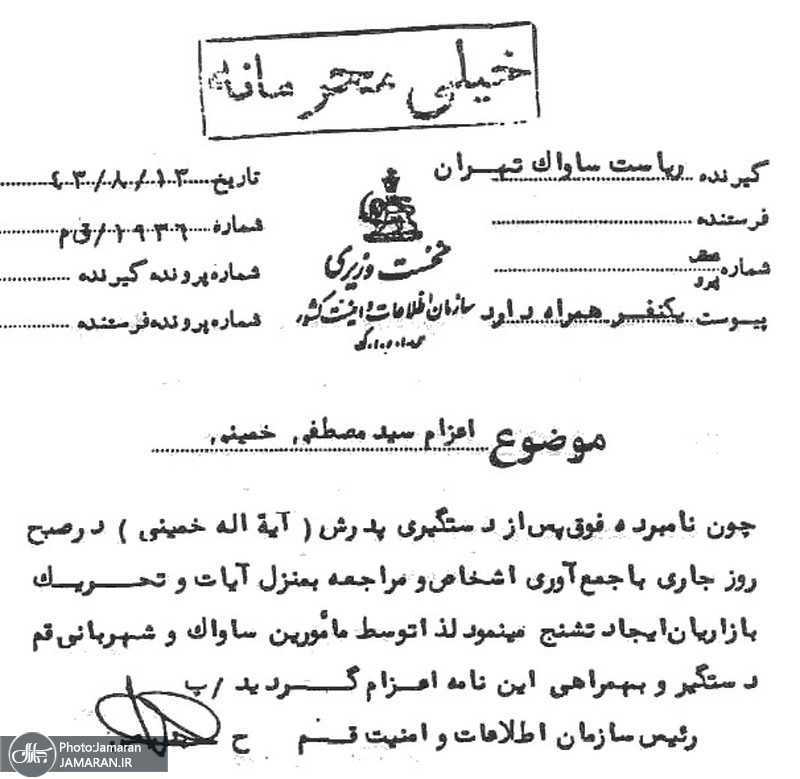 خیلی محرمانه
گیرنده ریاست ساواک تهران
فرستنده
شماره
پیوست یکنفر همراه دارد
نخست وزیری
سازمان اطلاعات و امنیت کشور
س.ا.و.ا.ک
تاریخ ۴۳/۸/۱۳
شماره ۱۹۳۶/ق م
شماره پرونده گیرنده
شماره پرونده فرستنده
موضوع اعزام سید مصطفی خمینی
چون نامبرده فوق پس از دستگیری پدرش ( آیة اله خمینی ) در صبح
روز جاری با جمع آوری اشخاص و مراجعه بمنزل آیات و تحریک
بازاریان ایجاد تشنج مینمود لذا توسط مأمورین ساواک و شهربانی قم
دستگیر و بهمراهی این نامه اعزام گردید / پ
رئیس سازمان اطلاعات و امنیت قم ح
Photo:Jamaran
JAMARAN.IR